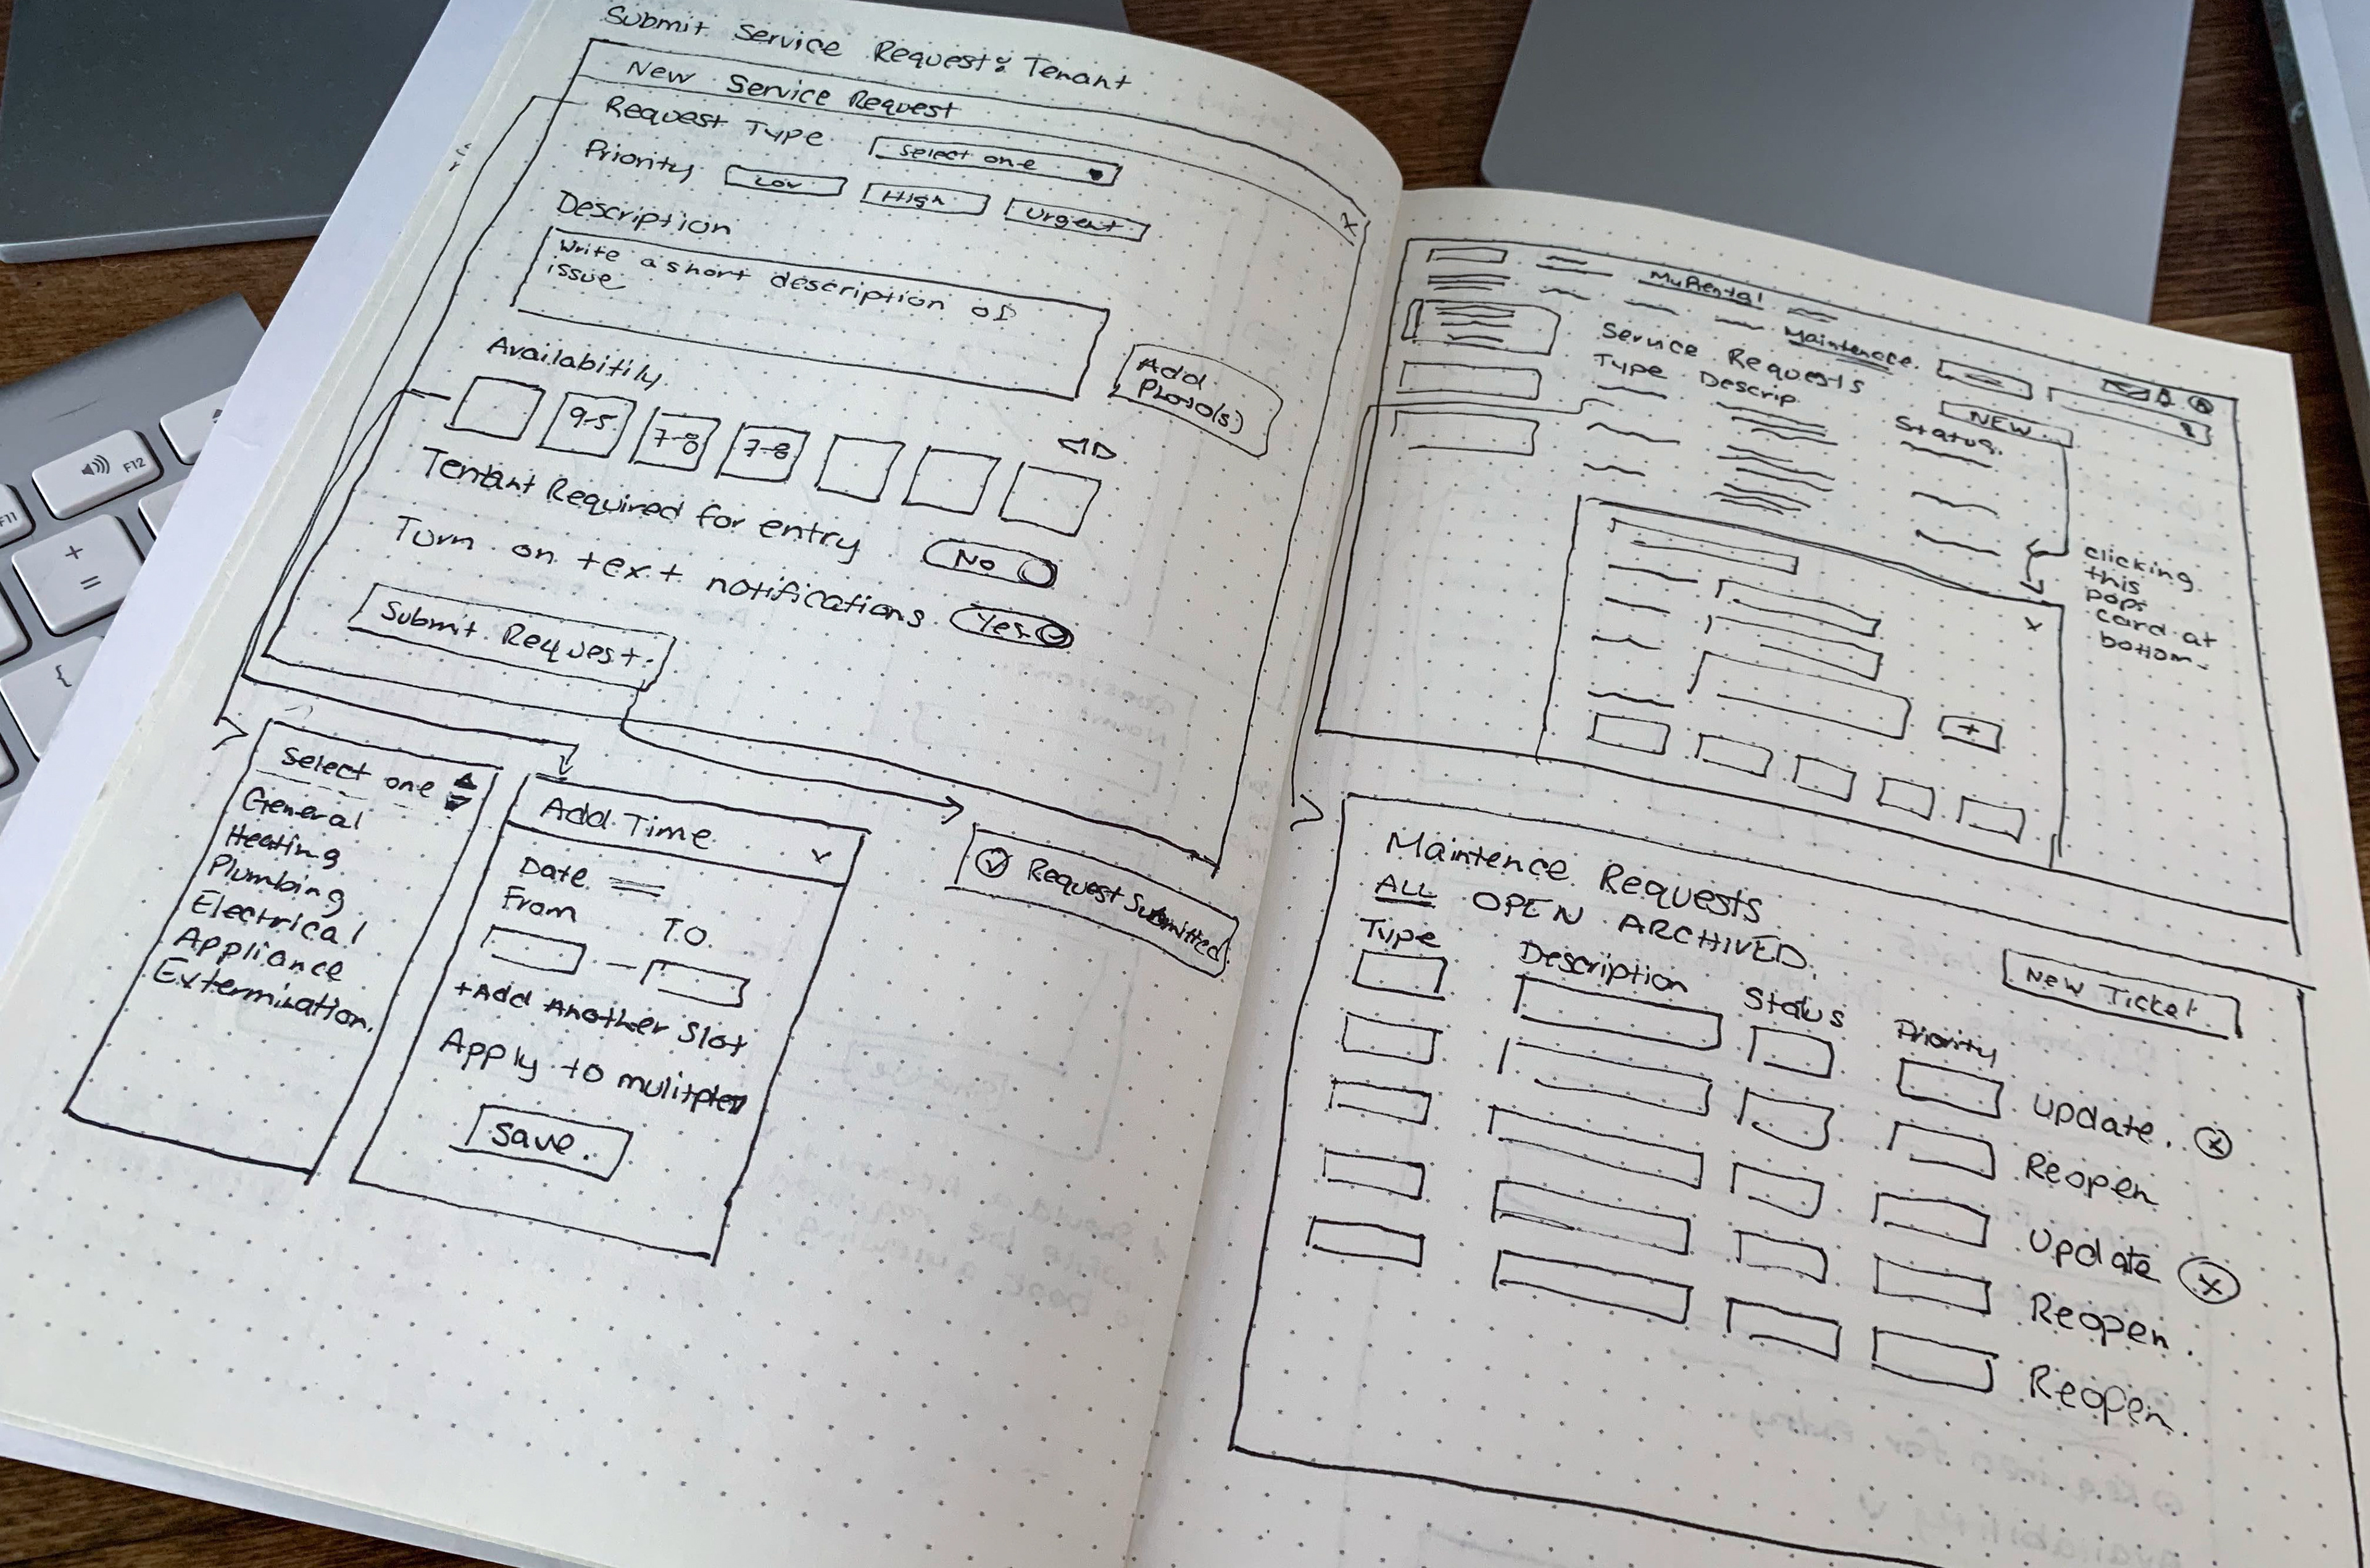 Submit Service Request: Tenant
New Service Request
X
Request Type
Select one
Priority
Low
High
Urgent
Description
Write a short description of
issue
Add
Availabitily
9-5
7-8
7-8
Tentant Required for entry
No
Turn on text notifications
Yes
Submit Request
Select one
General
Heating
Plumbing
Electrical
Appliance
Extermination
Add Time
x
Date
From
TO
+Add Another Slot
Apply to
Save
Request Submitted
MyRental
Maintenece
Service Requests
NEW
Type Descrip
Status
clicking
this
pops
card at
bottom
x
+
Maintence Requests
ALL OPEN ARCHIVED
New Ticket
Type
Description
Status
Priority
Update x
Reopen
Update x
Reopen
Reopen
F12
F11
+
=
{